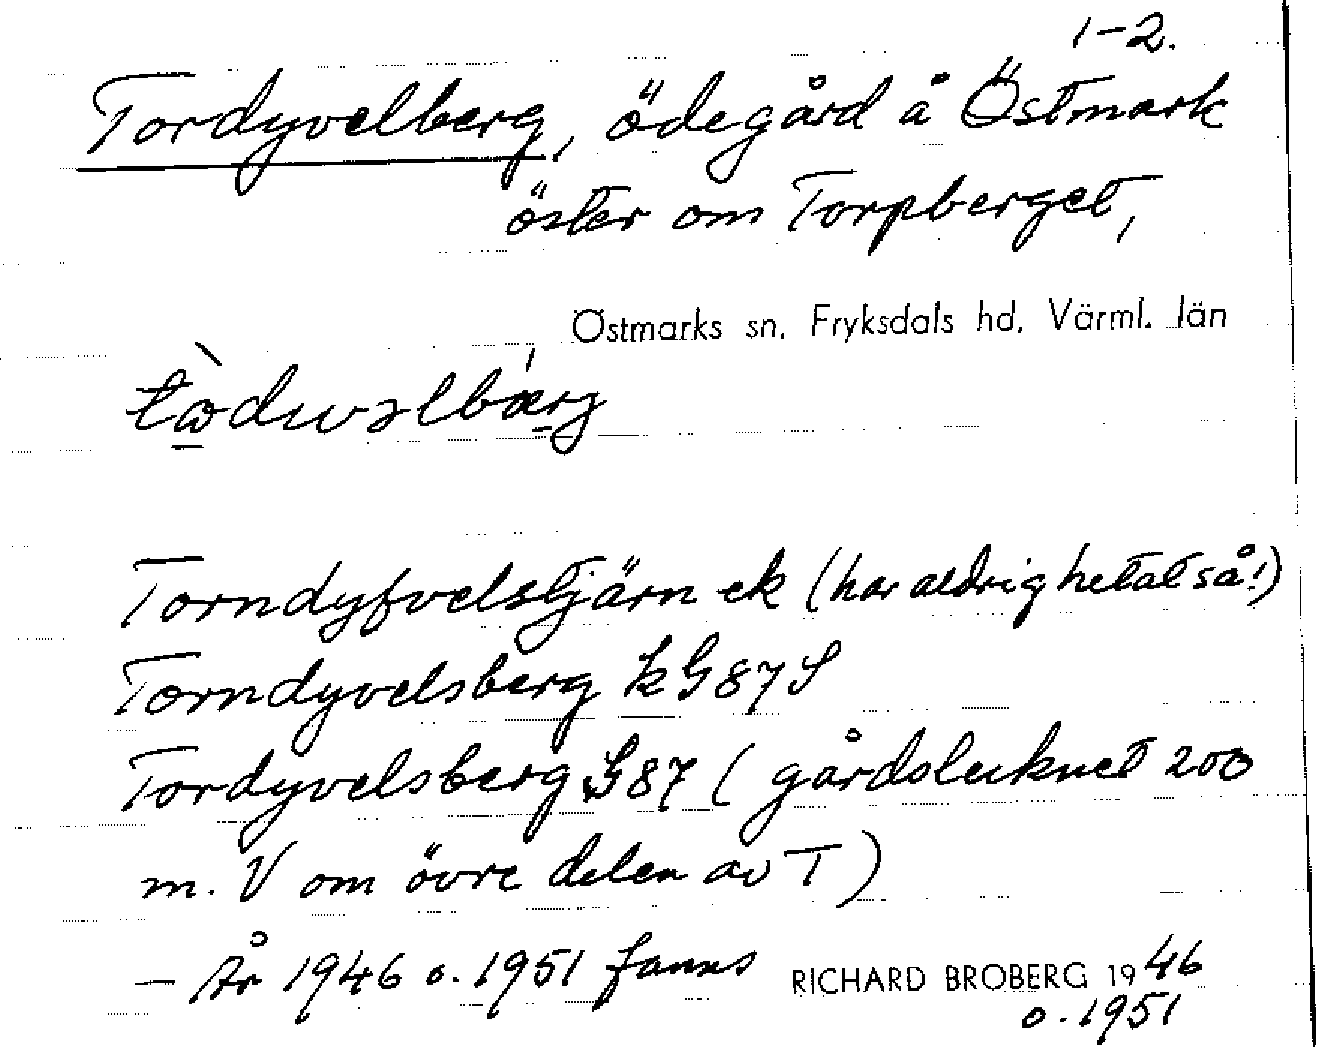 1-2.
Tordyvelberg, ödegård å Östmark
öster om Torpberget,
Östmarks sn. Fryksdals hd. Värml. län
Torndyfvelstjärn ek (har aldrig hetat så!)
Torndyvelsberg k G 87 S
Tordyvelsberg G 87 (gårdstecknet 200
m. V om övre delen av T)
- År 1946 o. 1951 fanns RICHARD BROBERG 1946
o. 1951